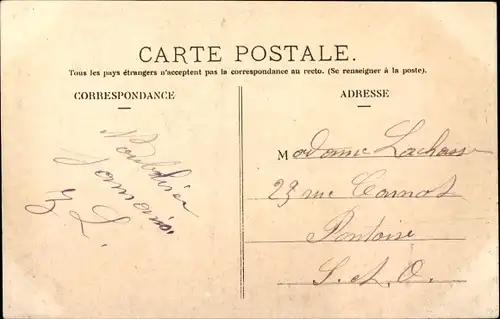 CARTE POSTALE.
Tous les pays étrangers n'acceptent pas la correspondance au recto. (Se renseigner à la poste).
CORRESPONDANCE
ADRESSE
Madame Lachasse
23 rue Carnot
Pontoise
S. et. O.